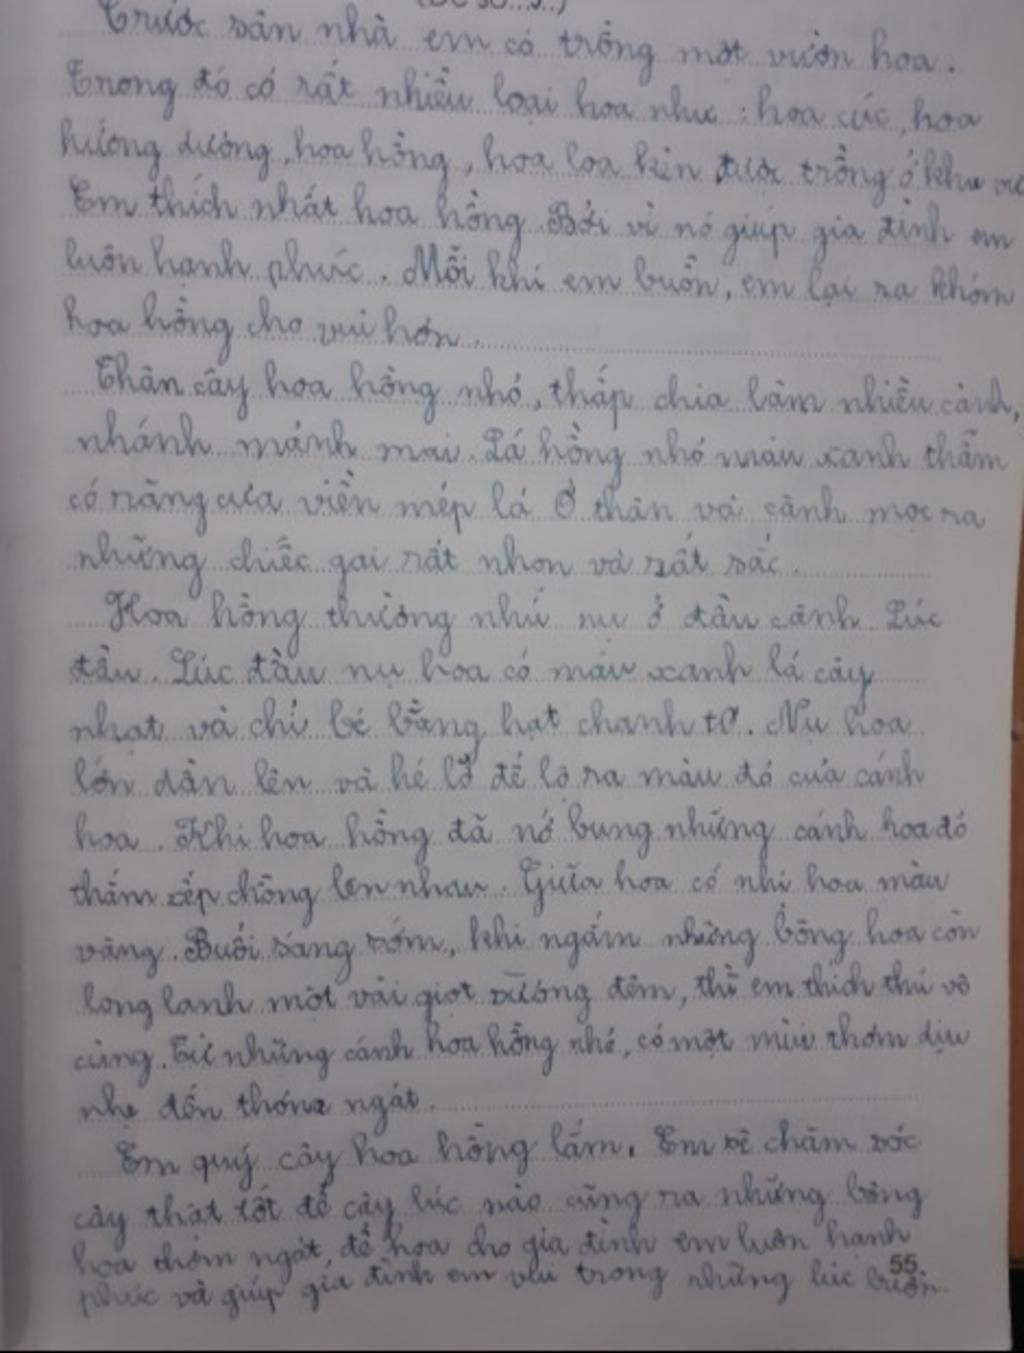 Trước sân nhà em có trồng một vườn hoa.
Trong đó có rất nhiều loại hoa như : hoa cúc, hoa
hướng dương, hoa hồng, hoa loa kèn được trồng ở khu
Em thích nhất hoa hồng. Bởi vì nó giúp gia đình em
luôn hạnh phúc. Mỗi khi em buồn, em lại ra khóm
hoa hồng cho vui hơn.
Thân cây hoa hồng nhỏ, thấp chia làm nhiều cành,
nhánh mảnh mai. Lá hồng nhỏ màu xanh thẫm
có răng cưa viền mép lá. Ở thân và cành mọc ra
những chiếc gai rất nhọn và rất sắc.
Hoa hồng thường nhú nụ ở đầu cành. Lúc
đầu. Lúc đầu nụ hoa có màu xanh lá cây
nhạt và chỉ bé bằng hạt chanh to. Nụ hoa
lớn dần lên và hé lở để lộ ra màu đỏ của cánh
hoa. Khi hoa hồng đã nở bung những cánh hoa đỏ
thắm xếp chồng lên nhau. Giữa hoa có nhị hoa màu
vàng. Buổi sáng sớm, khi ngắm những bông hoa còn
long lanh một vài giọt sương đêm, thì em thích thú vô
cùng. Từ những cánh hoa hồng nhỏ, có một mùi thơm dịu
nhẹ đến thơm ngát.
Em quý cây hoa hồng lắm. Em sẽ chăm sóc
cây thật tốt để cây lúc nào cũng ra những bông
hoa thơm ngát, để hoa cho gia đình em luôn hạnh
phúc và giúp gia đình em vui trong những lúc buồn.
55